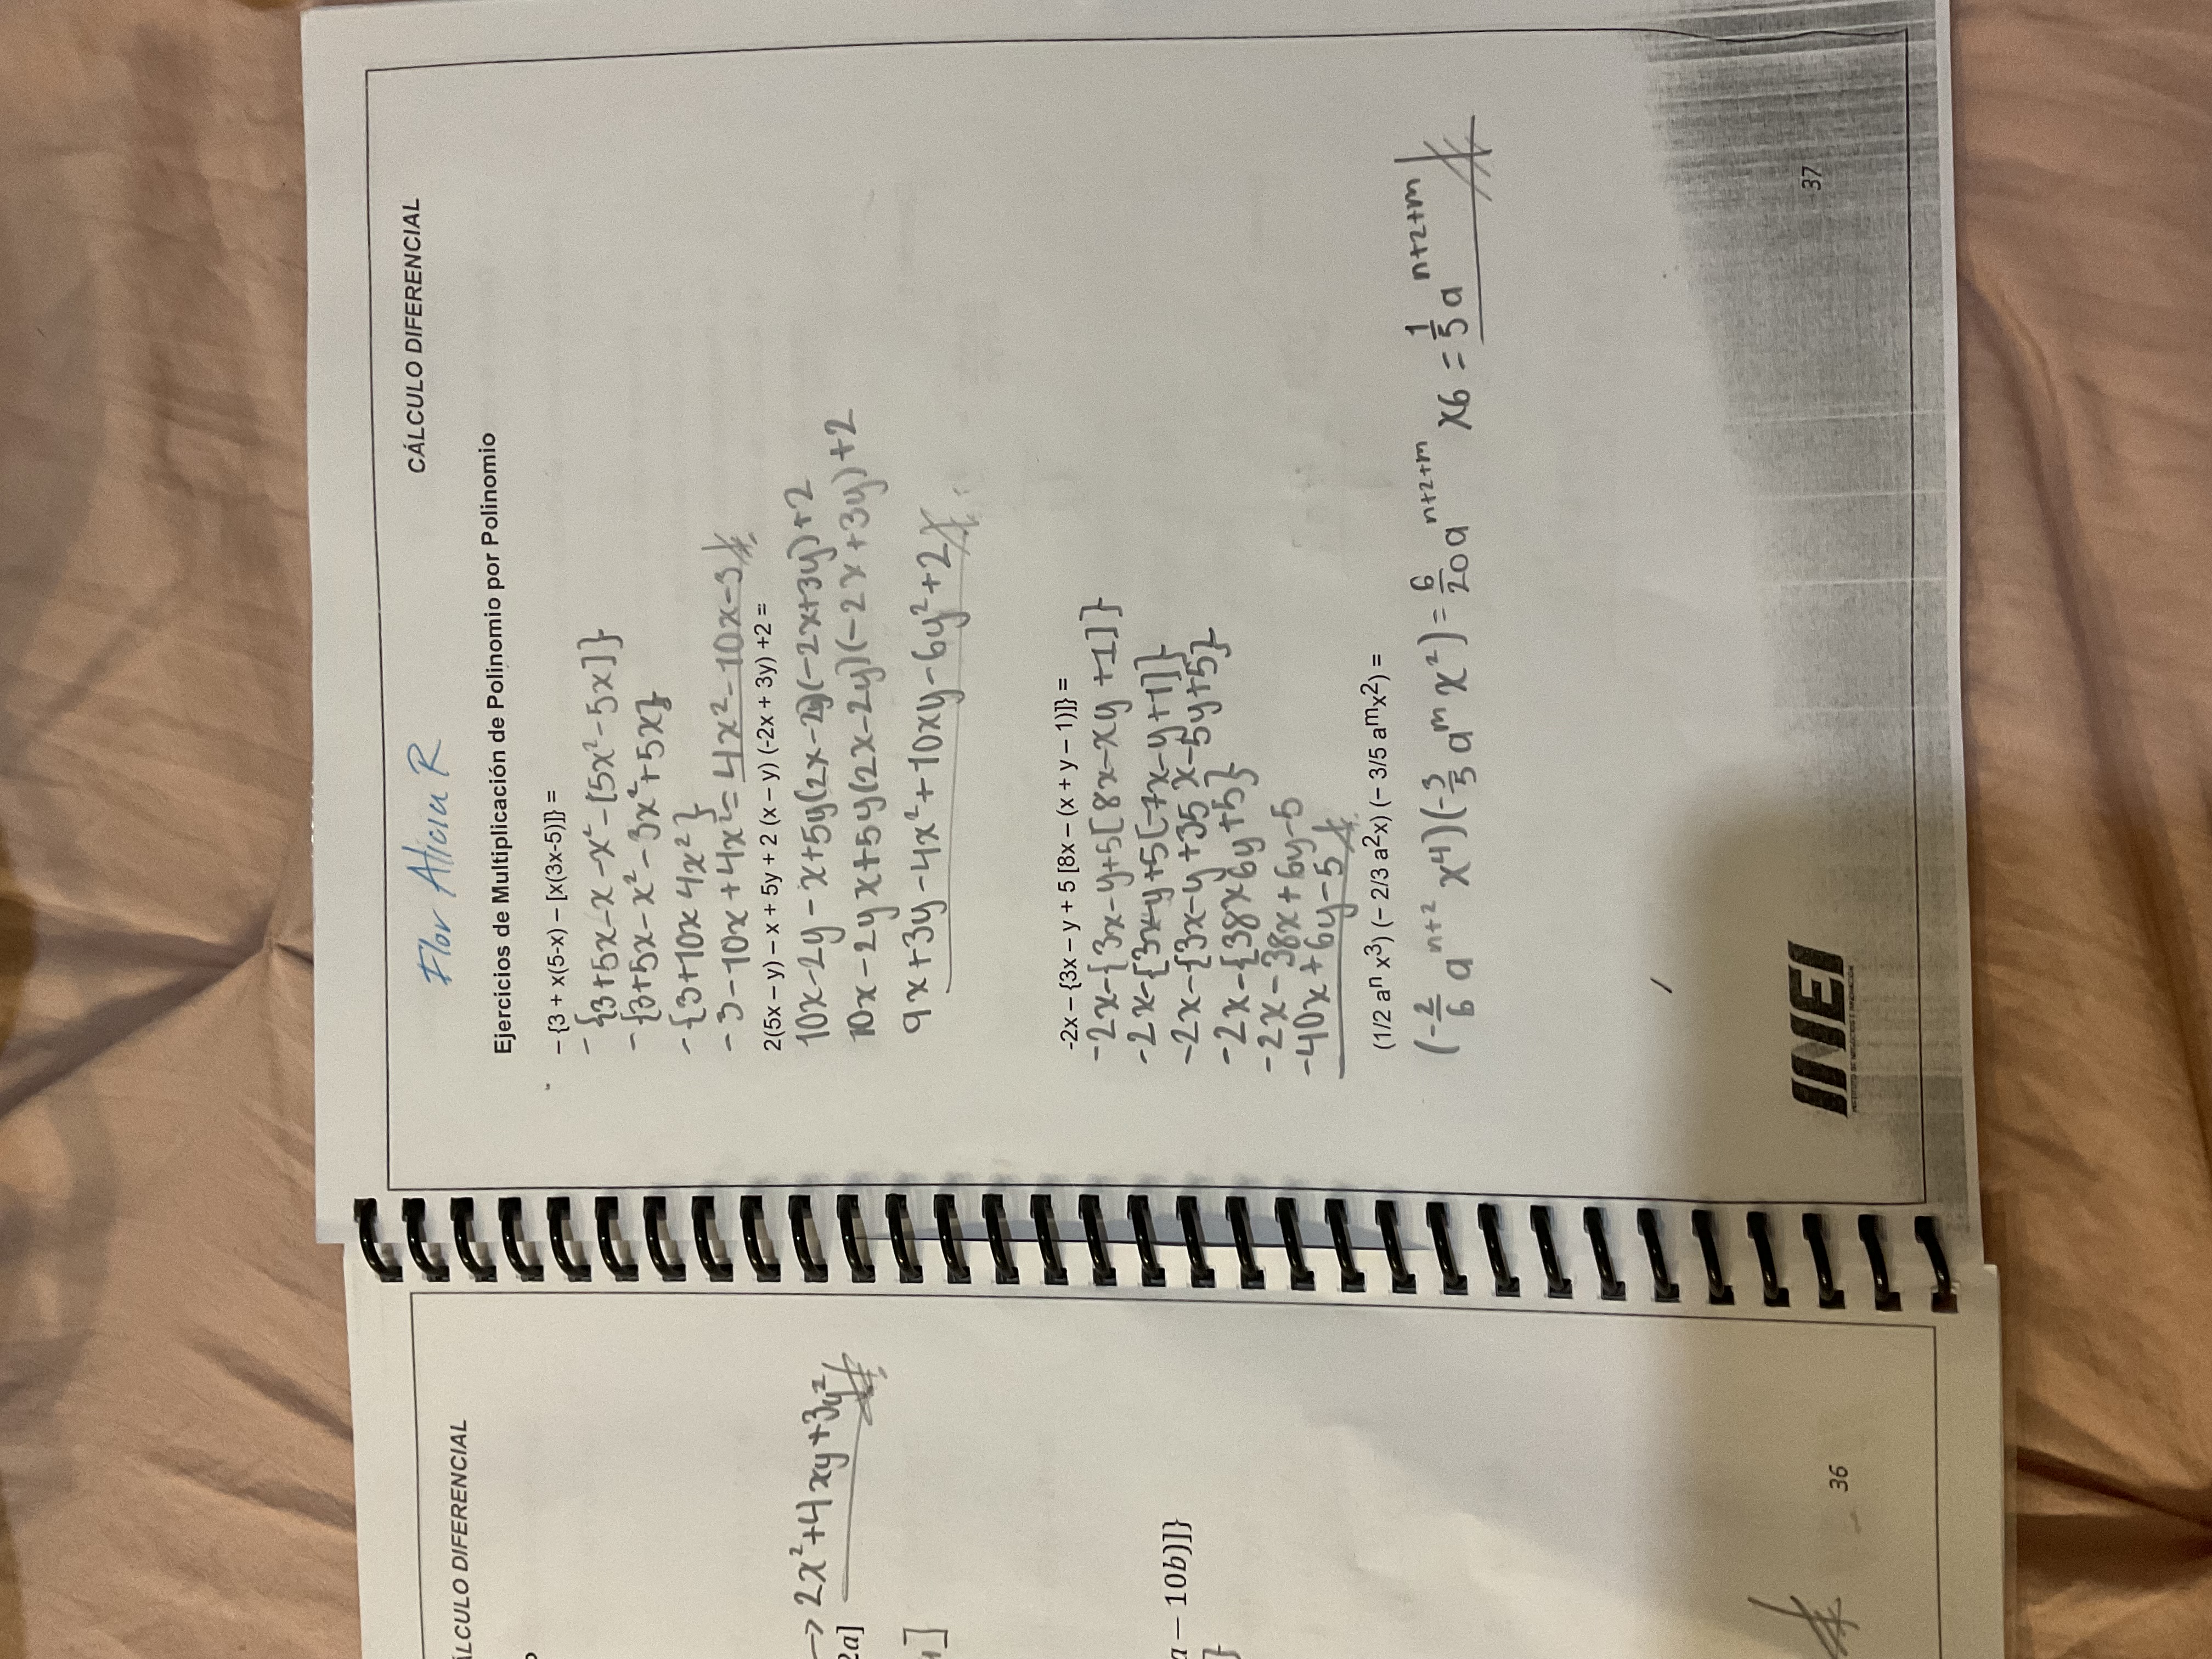 CÁLCULO DIFERENCIAL
→ 2x²+4xy+3y²
2a]
]
a − 10b)]]}
}
36
Flor Alicia R
CÁLCULO DIFERENCIAL
Ejercicios de Multiplicación de Polinomio por Polinomio
− {3 + x(5-x) − [x(3x-5)]} =
- {3+5x-x-x²-[5x²-5x]}
- {3+5x-x²-3x²+5x}
- {3+10x 4x²}
- 3-10x+4x² = 4x²-10x-3
2(5x − y) − x + 5y + 2 (x − y) (-2x + 3y) +2 =
10x-2y-x+5y(2x-2y)(-2x+3y)+2
10x-2yx+5y(2x-2y)(-2x+3y)+2
9x+3y-4x²+10xy-6y²+2
-2x − {3x − y + 5 [8x − (x + y − 1)]} =
-2x-{3x-y+5[8x-xy+1]}
-2x-{3x-y+5[-7x-y+1]}
-2x-{3x-y+35x-5y+5}
-2x-{38x6y+5}
-2x-38x+6y-5
-40x+6y-5
(1/2 aⁿ x³) (− 2/3 a²x) (− 3/5 aᵐx²) =
(-2/6 aⁿ⁺² x⁴)(-3/5 aᵐ x²) = 6/20 aⁿ⁺²⁺ᵐ x6 = 1/5 aⁿ⁺²⁺ᵐ
INEI
37